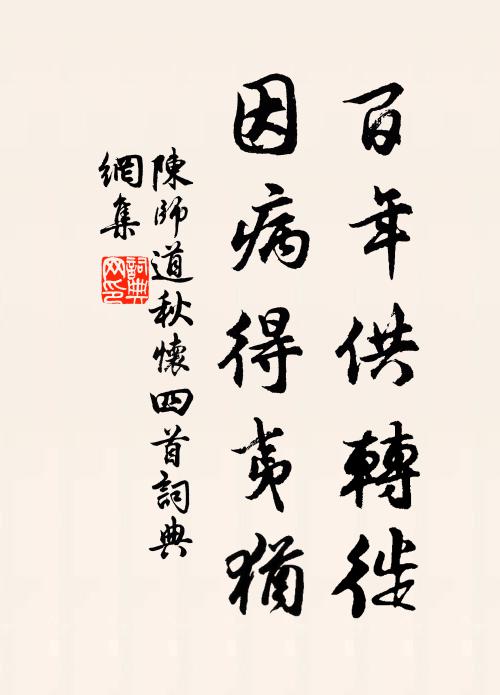 百年供轉徙
因病得夷猶
陳師道秋懷四首詞典
網集
詞典網印